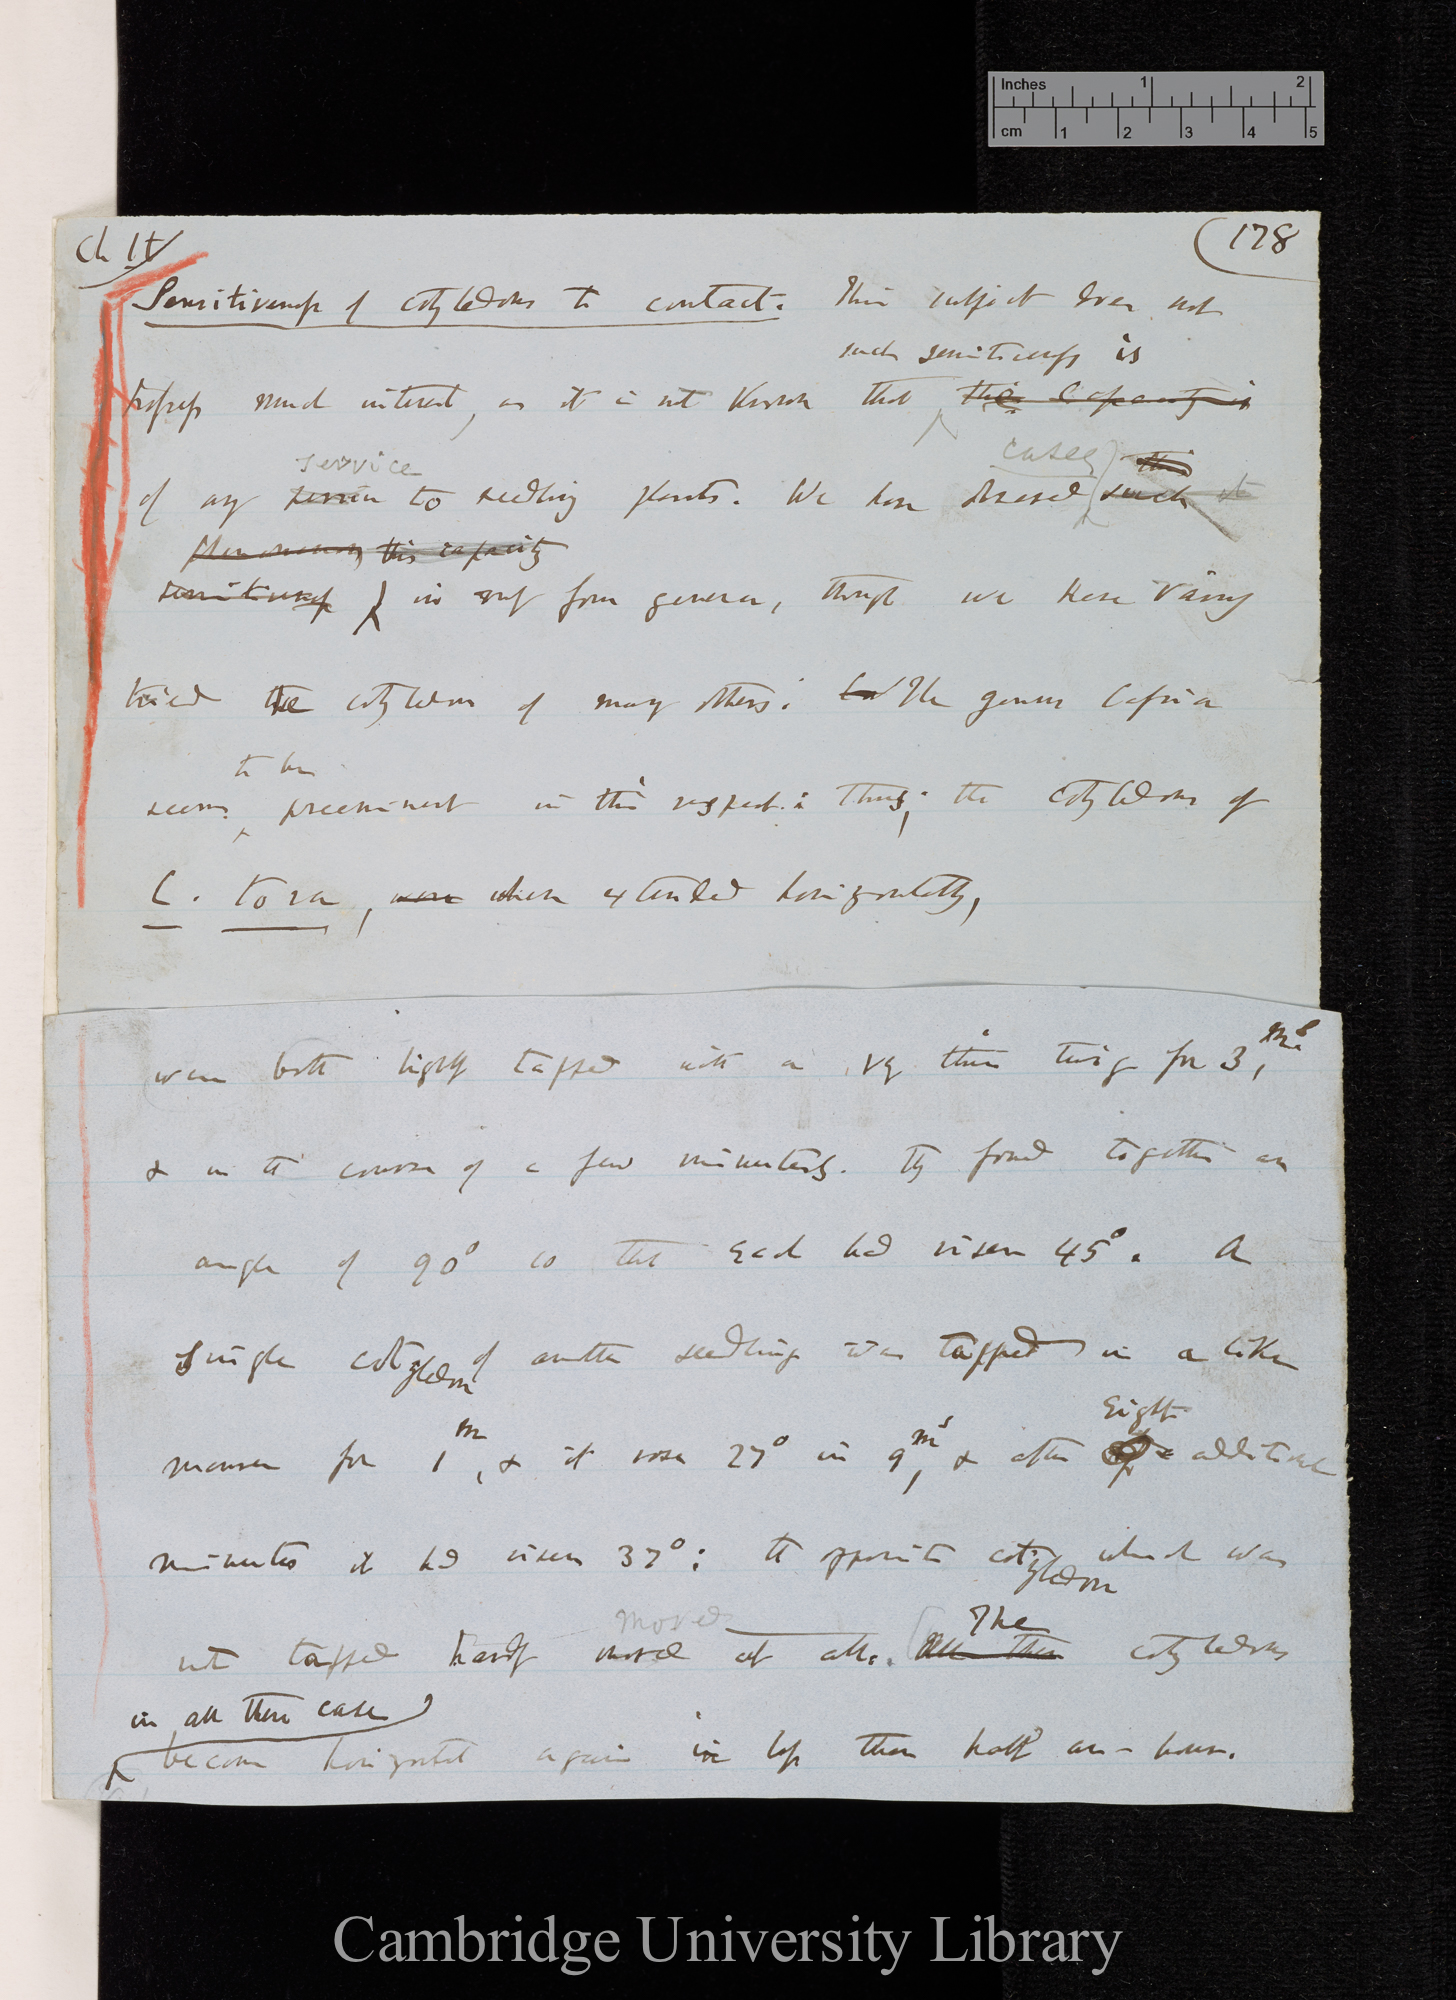 Inches 1 2
cm 1 2 3 4 5
Ch IV
(178
Sensitiveness of cotyledons to contact: This subject does not
such sensitiveness is
possess much interest, as it is not known that this capacity is
service cases this
of any service to seedling plants. We have observed such
phenomenon this capacity
sensitiveness in only four genera, though we have vainly
tried the cotyledons of many others: The genus Cassia
to be
seems preeminent in this respect: Thus, the cotyledons of
C. tora, were when extended horizontally,
were both lightly tapped with a very thin twig for 3, ms
& in the course of a few minutes. they formed together an
angle of 90° so that each had risen 45°. A
single cotyledon of another seedling was tapped in a like
Eight
manner for 1m, & it rose 27° in 9ms, & after additional
minutes it had risen 37°: the opposite cotyledon which was
moved The
not tapped hardly moved at all. All these cotyledons
in all these cases
become horizontal again in less than half an-hour.
Cambridge University Library